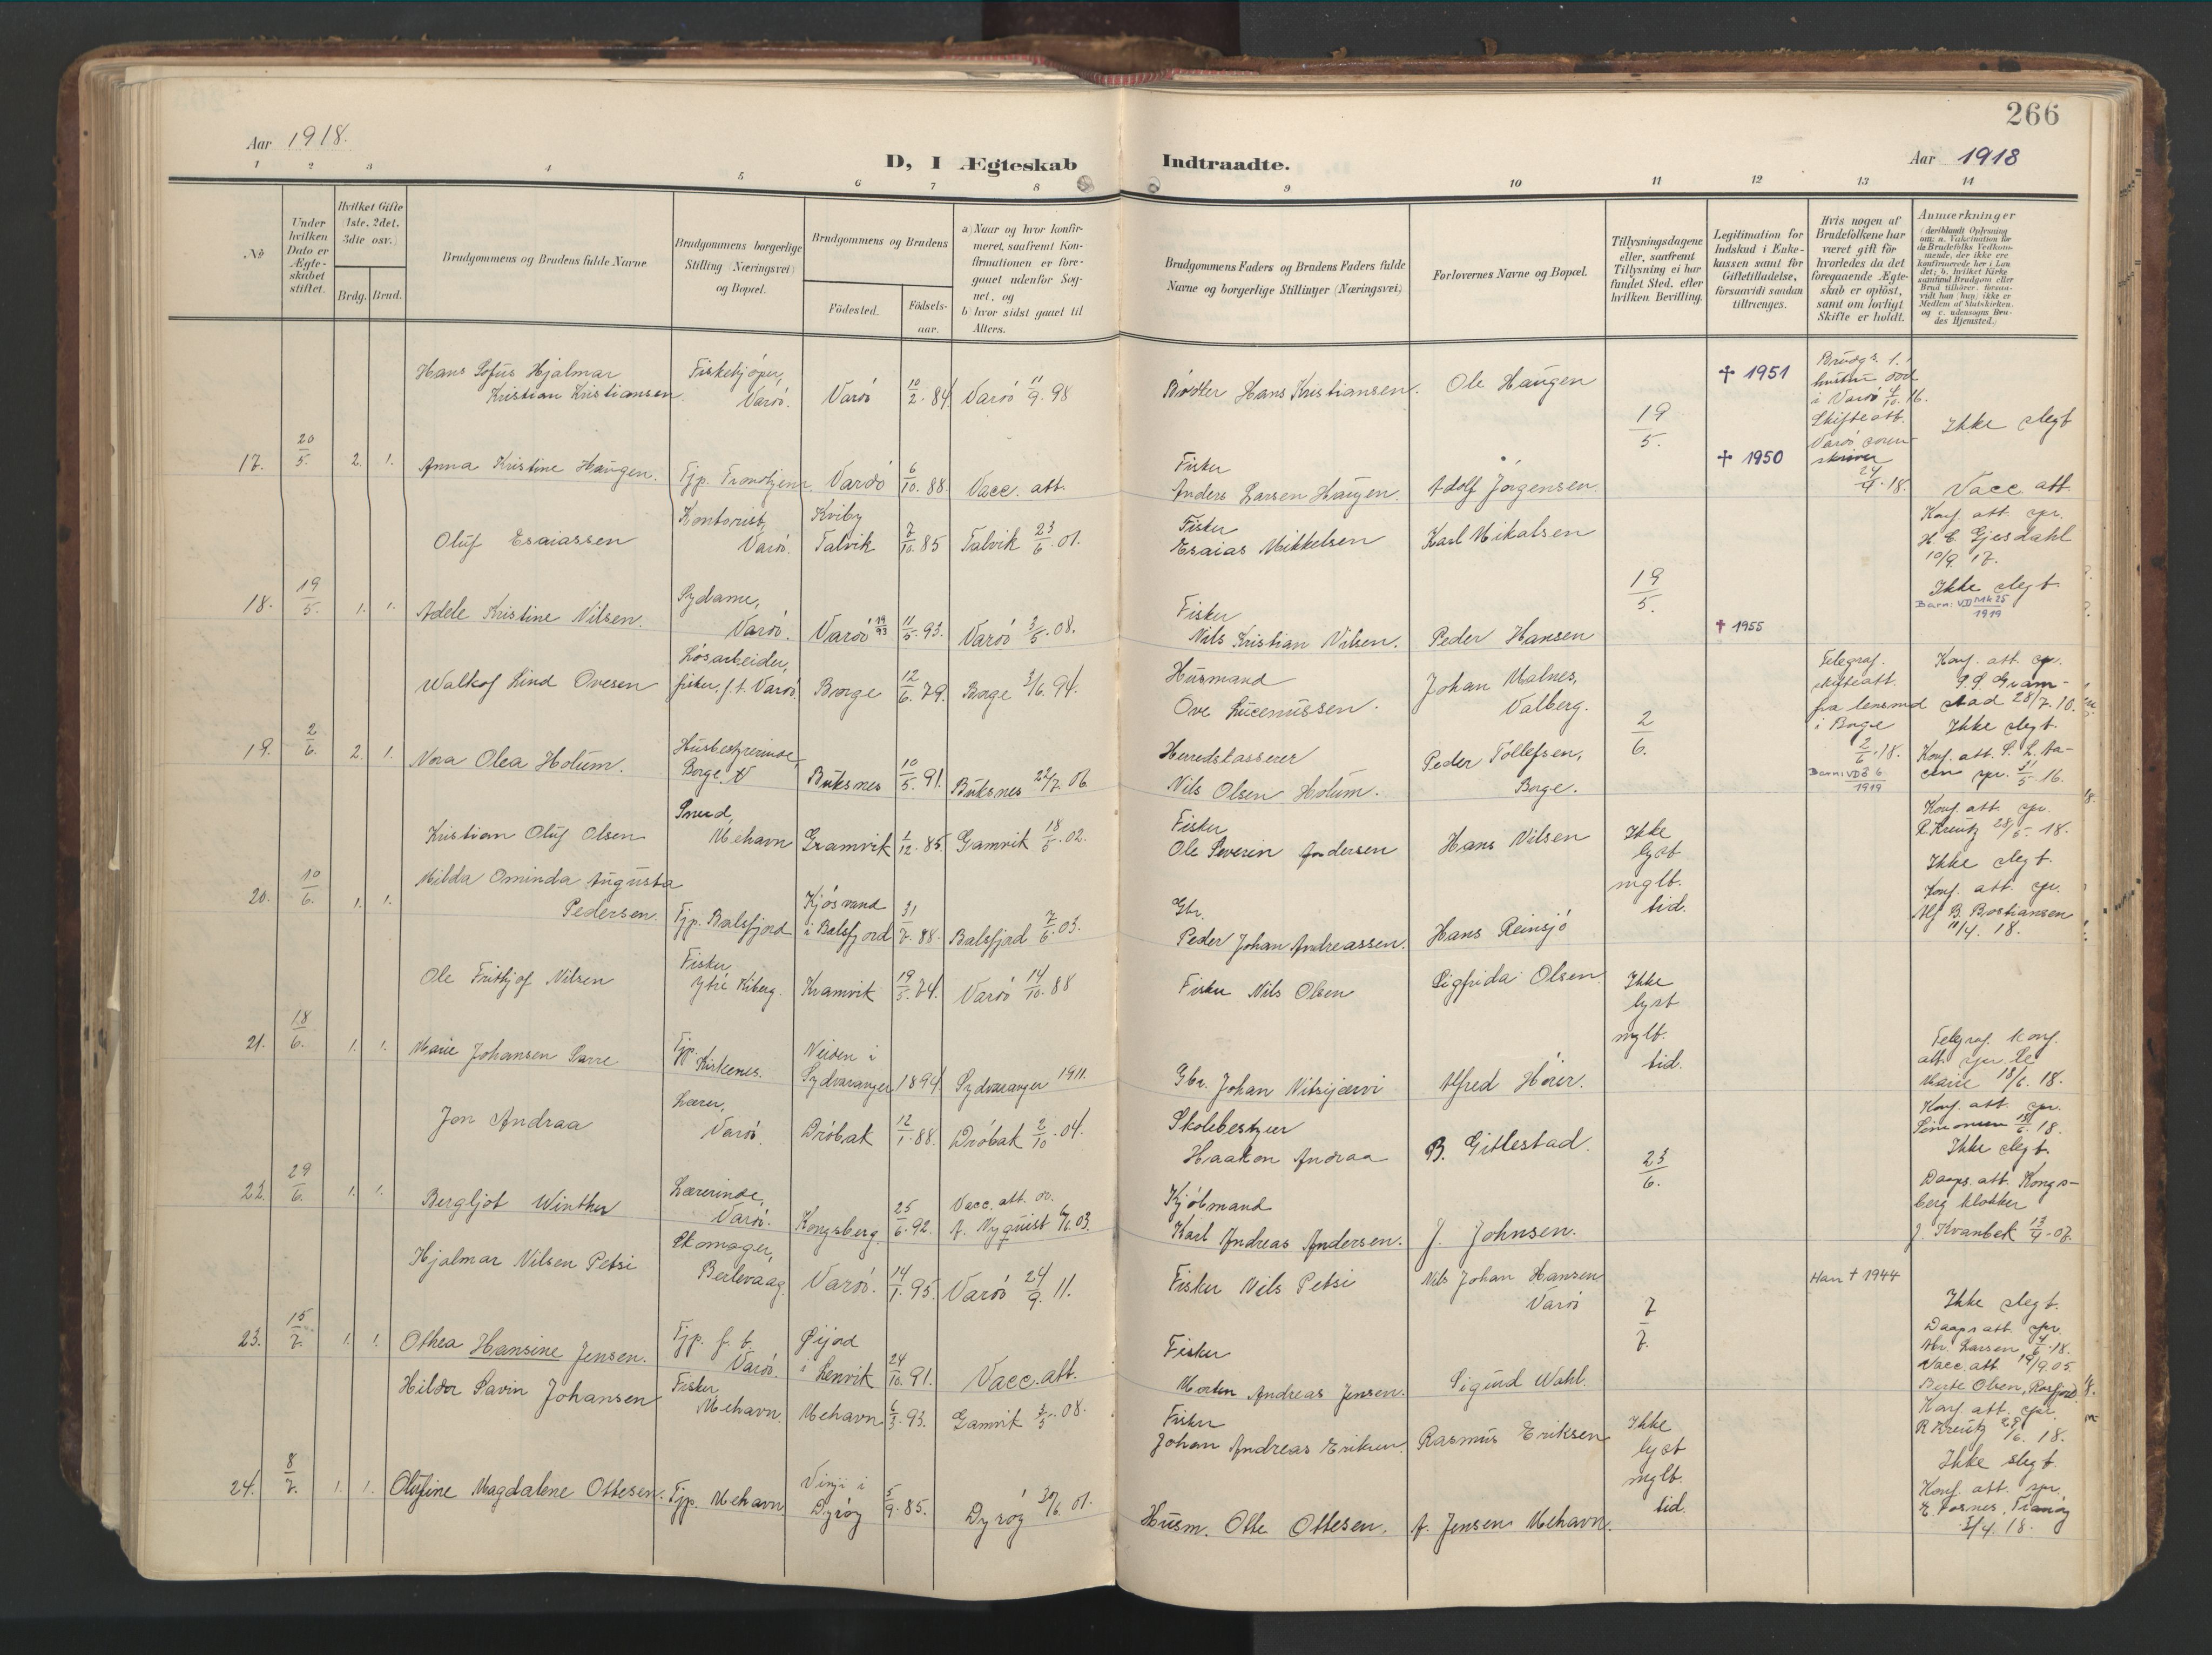 266
Aar 1918.
D, I Ægteskab Indtraadte.
Aar 1918
1 2 3 4 5 6 7 8 9 10 11 12 13 14
No
Under hvilken Dato er Ægteskabet stiftet.
Hvilket Gifte (1ste, 2det, 3die osv.)
Brdg. Brud.
Brudgommens og Brudens fulde Navne
Brudgommens borgerlige Stilling (Næringsvei) og Bopæl.
Brudgommens og Brudens
Födested.
Födselsaar.
a) Naar og hvor konfirmeret, saafremt Konfirmationen er foregaaet udenfor Sognet, og
b) hvor sidst gaaet til Alters.
Brudgommens Faders og Brudens Faders fulde Navne og borgerlige Stillinger (Næringsvei)
Forlovernes Navne og Bopæl.
Tillysningsdagene eller, saafremt Tillysning ei har fundet Sted, efter hvilken Bevilling.
Legitimation for Indskud i Enkekassen samt for Giftetilladelse, forsaavidt saadan tiltrænges.
Hvis nogen af Brudefolkene har været gift för hvorledes da det foregaaende Ægteskab er oplöst, samt om lovligt Skifte er holdt.
Anmærkninger
(deriblandt Oplysning om: a. Vakcination for de Brudefolks Vedkommende, der ikke ere konfirmerede her i Landet; b. hvilket Kirkesamfund Brudgom eller Brud tilhörer, forsaavidt han (hun) ikke er Medlem af Statskirken, og c. udensogns Brudes Hjemsted.)
Hans Sofus Hjalmar
Kristian Kristiansen
Fiskekjöper,
Vardö.
Vardö 10/2. 84 Vardö 11/9. 98
Bödker Hans Kristiansen. Ole Haugen
19/5.
✝ 1951
Brudg.s 1.
hustru död
i Vardö 4/10. 16.
Skifteatt.
Vardö soren-
skriver
24/4. 18.
Ikke slegt
17. 20/5. 2. 1. Anna Kristine Haugen. Tjp. Trondhjem. Vardö 6/10. 88. Vacc. att.
Fisker
Anders Larsen Haugen. Adolf Jörgensen.
✝ 1950
Vacc. att.
Oluf Esaiassen
Kontorist,
Vardö.
Kviby
Talvik 7/10. 85 Talvik 23/6. 01.
Fisker
Esaias Mikkelsen Karl Mikalsen
Konf. att. spr.
H. E. Gjesdahl
10/9. 17.
Ikke slegt.
18. 19/5. 1. 1. Adele Kristine Nilsen.
Sydame,
Vardö. Vardö 11/5. 93. Vardö 3/5. 08.
Fisker
Nils Kristian Nilsen. Peder Hansen
19/5.
✝ 1955
1919
Walkof Lind Ovesen
Lösarbeider,
fisker, f. t. Vardö. Borge 12/6. 79. Borge 3/6. 94.
Husmand
Ove Lucenussen.
Johan Malnes,
Valberg.
2/6.
Telegraf.
skifteatt.
fra lensmd
i Borge
2/6. 18.
1919
Konf. att. spr.
stad 28/7. 10.
Ikke slegt.
19. 2/6. 2. 1. Nora Olea Holum.
Husbestyrerinde,
Borge. Buksnes 10/5. 91. Buksnes 22/7. 06
Herredskasserer
Nils Olsen Holum.
Peder Tollefsen,
Borge.
Konf. att.
spr. 31/5. 16.
Kristian Oluf Olsen
Smed,
Mehavn Gramvik 1/12. 85. Gamvik 18/5. 02.
Fisker
Ole Severin Andersen Hans Nilsen
Ikke
lyst
mglt.
tid.
Konf. att. spr.
R. Kreutz 28/5. 18.
Ikke slegt.
20. 10/6. 1. 1. Milda Ominda Augusta
Pedersen. Tjp. Balsfjord
Kjösvand
i Balsfjord 31/7. 88. Balsfjord 7/6. 03.
Gbr.
Peder Johan Andreassen. Hans Reinsjö
Konf. att. spr.
Alf B. Bastiansen
11/4. 18.
Ole Fritkjof Nilsen
Fisker
Ytre Kiberg. Kramvik 19/5. 74. Vardö 14/10. 88
Fisker Nils Olsen Sigfrida Olsen
Ikke
lyst
mglt.
tid.
21. 18/6. 1. 1. Marie Johansen Sarre
Tjp.
Kirkenes.
Neiden i
Sydvaranger 1894 Sydvaranger 1911.
Gbr. Johan Nitsijærvi Alfred Hörer.
Telegraf. konf.
att. spr. Le
Maire 18/6. 18.
Jon Andraa
Lærer,
Vardö. Dröbak 12/1. 88. Dröbak 2/10. 04.
Skolebestyrer
Haakon Andraa B. Gitlestad.
23/6.
Konf. att. spr.
Simonsen 18/6. 18.
Ikke slegt.
22. 29/6. 1. 1. Bergljot Winther
Lærerinde,
Vardö. Kongsberg 25/6. 92.
Vacc. att. dr.
A. Nyquist 6/6. 03.
Kjöbmand
Karl Andreas Andersen. J. Johnsen.
Daaps. att. Kongs-
berg klokker
J. Kvanbek 13/4. 07.
Hjalmar Nilsen Petsi
Skomager,
Berlevaag Vardö. 14/1. 95. Vardö 24/9. 11.
Fisker Nils Petsi
Nils Johan Hansen
Vardö
7/7.
Han ✝ 1944
Ikke slegt.
23. 15/7. 1. 1. Othea Hansine Jensen.
Tjp. f. t.
Vardö.
Öijord
i Lenvik 24/10. 91. Vacc. att.
Fisker
Morten Andreas Jensen. Sigurd Wahl.
Daapsatt. spr.
Larsen 4/6. 18.
Vacc. att. 19/9. 05
Berte Olsen, Rosfjord
Hildor Savin Johansen
Fisker
Mehavn. Mehavn 6/3. 93. Gamvik 3/5. 08.
Fisker
Johan Andreas Eriksen. Rasmus Eriksen
Ikke
lyst
mglt.
tid.
Konf. att. spr.
R. Kreutz 28/6. 18.
Ikke slegt.
24. 8/7. 1. 1. Olufine Magdalene Ottesen. Tjp. Mehavn
Vinji i
Dyröy 5/9. 85. Dyröy 30/6. 01.
Husm. Otte Ottesen. A. Jensen Mehavn.
Konf. att. spr.
E. Fosnes, Tranöy
2/4. 18.